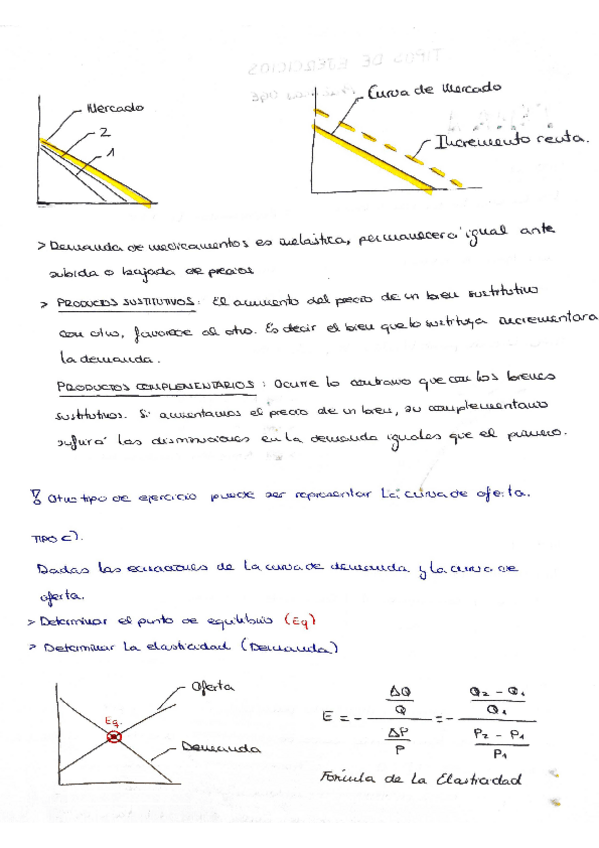 Mercado
2
1
Curva de Mercado
Incremento renta.
> Demanda de medicamentos es inelástica, permanecerá igual ante
subida o bajada de precios
> PRODUCTOS SUSTITUTIVOS: El aumento del precio de un bien sustitutivo
con otro, favorece al otro. Es decir el bien que lo sustituya incrementara
la demanda.
PRODUCTOS COMPLEMENTARIOS: Ocurre lo contrario que con los bienes
sustitutivos. Si aumentamos el precio de un bien, su complementario
sufrirá las disminuciones en la demanda iguales que el primero.
Otro tipo de ejercicio puede ser representar La curva de oferta.
TIPO C).
Dadas las ecuaciones de la curva de demanda y la curva de
oferta.
> Determinar el punto de equilibrio (Eq)
> Determinar la elasticidad (Demanda)
Oferta
Eq.
Demanda
E = - ΔQ/Q / ΔP/P = - Q2 - Q1/Q1 / P2 - P1/P1
Fórmula de la Elasticidad